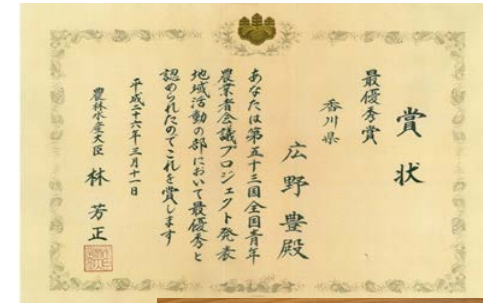 賞状
最優秀賞
香川県
広野豊殿
あなたは第五十三回全国青年
農業者会議プロジェクト発表
地域活動の部において最優秀と
認められたのでこれを賞します
平成二十六年三月十一日
農林水産大臣 林芳正